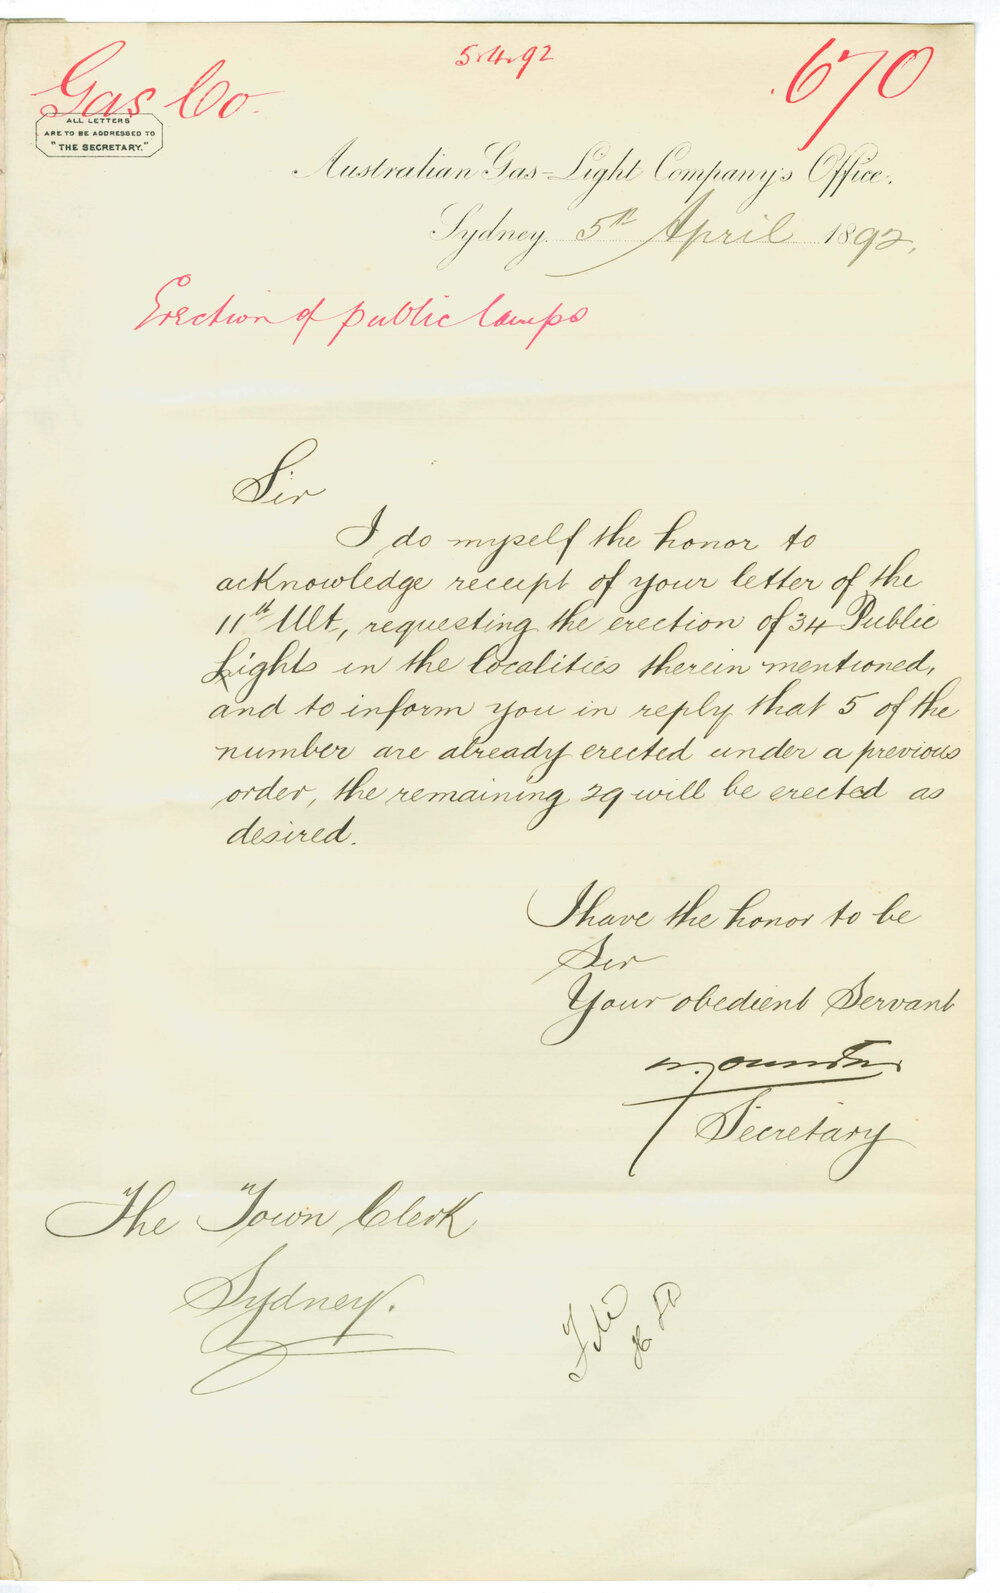 Gas Co.
5.4.92
670
ALL LETTERS
ARE TO BE ADDRESSED TO
"THE SECRETARY."
Australian Gas-Light Company's Office.
Sydney. 5th April 1892.
Erection of public lamps
Sir
I do myself the honor to
acknowledge receipt of your letter of the
11th Ult, requesting the erection of 34 Public
Lights in the localities therein mentioned,
and to inform you in reply that 5 of the
number are already erected under a previous
order, the remaining 29 will be erected as
desired.
I have the honor to be
Sir
Your obedient Servant
Secretary
The Town Clerk
Sydney.